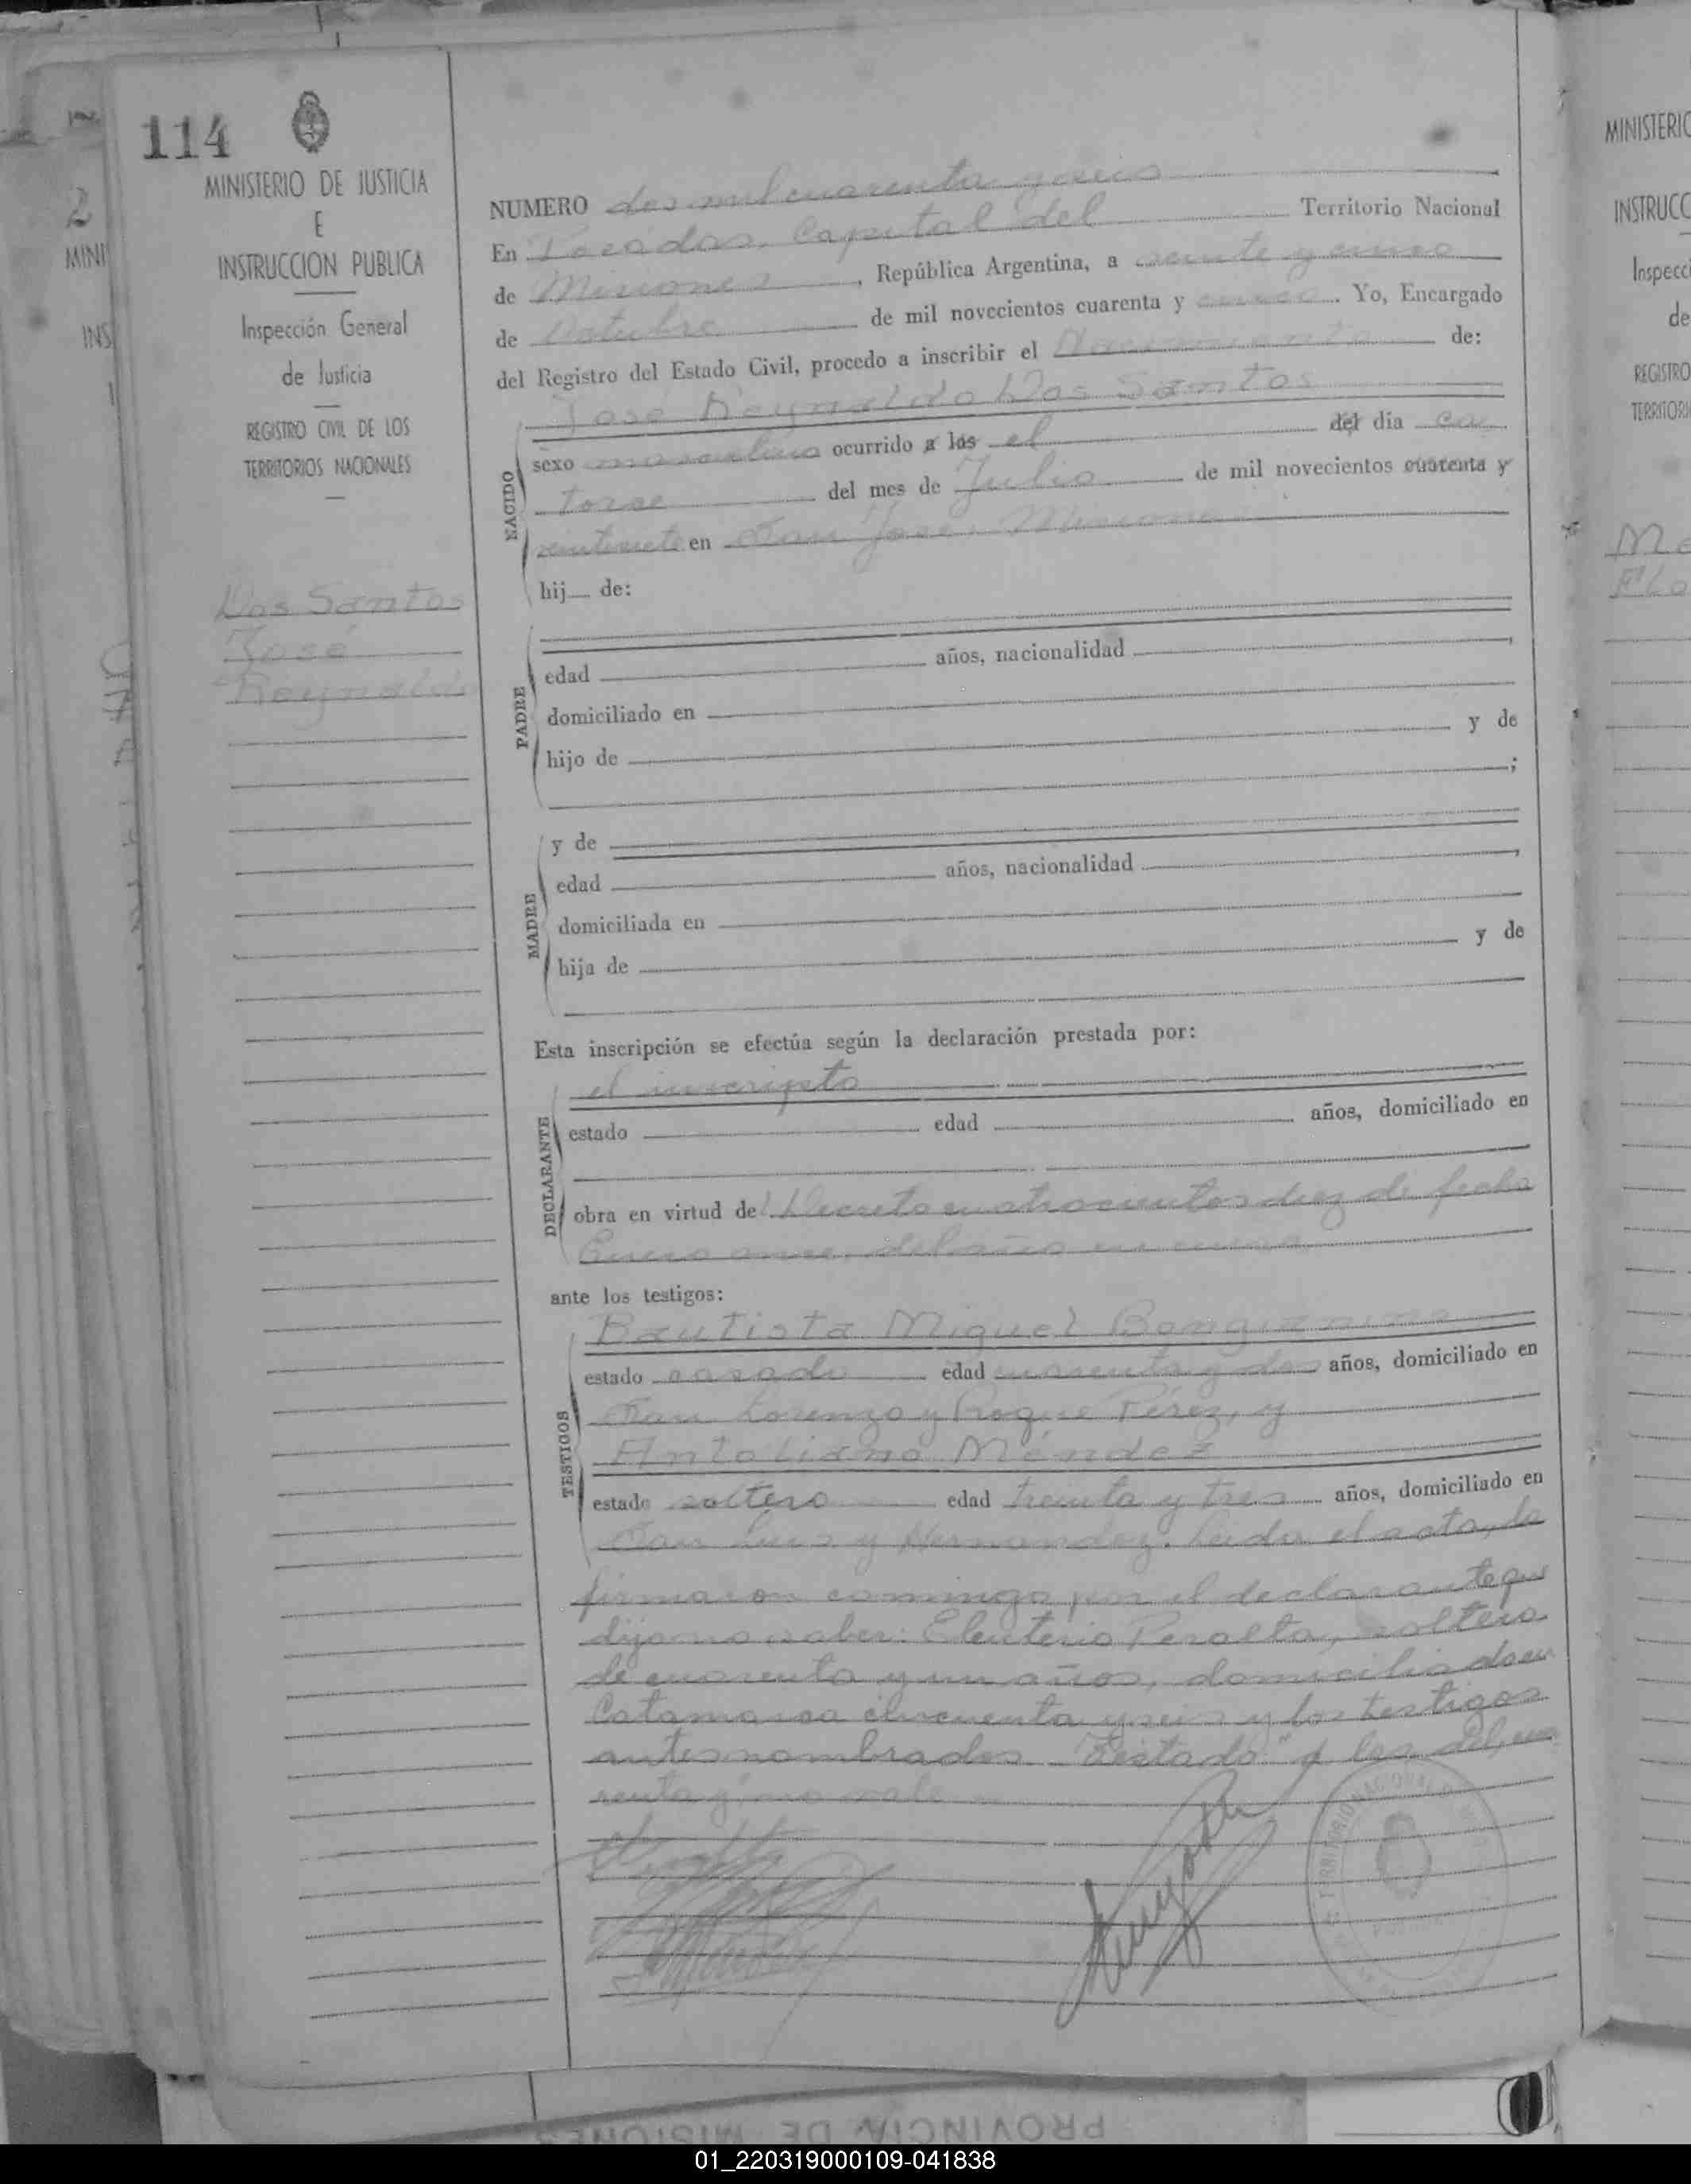 114
MINISTERIO DE JUSTICIA
E
INSTRUCCION PUBLICA
Inspección General
de Justicia
REGISTRO CIVIL DE LOS
TERRITORIOS NACIONALES
Dos Santos
José
Reynaldo
NUMERO dos mil cuarenta y seis
En Posadas, Capital del Territorio Nacional
de Misiones, República Argentina, a veinte y cinco
de Octubre de mil novecientos cuarenta y cinco. Yo, Encargado
del Registro del Estado Civil, procedo a inscribir el Nacimiento de:
José Reynaldo Dos Santos
NACIDO
sexo masculino ocurrido a las el del dia ca
torce del mes de Julio de mil novecientos cuarenta y
veintisiete en San José, Misiones
hij de:
PADRE
edad años, nacionalidad ,
domiciliado en
hijo de y de
;
MADRE
y de
edad años, nacionalidad ,
domiciliada en
hija de y de
Esta inscripción se efectúa según la declaración prestada por:
DECLARANTE
el inscripto
estado edad años, domiciliado en
obra en virtud del Decreto cuatrocientos diez de fecha
Enero once del año en curso
ante los testigos:
TESTIGOS
Bautista Miguel Bongianino
estado casado edad cuarenta y dos años, domiciliado en
San Lorenzo y Roque Pérez, y
Antoliano Méndez
estado soltero edad treinta y tres años, domiciliado en
San Luis y Hernandez. Leida el acta, la
firmaron conmigo por el declarante que
dijo no saber: Eleuterio Peralta, soltero
de cuarenta y un años, domiciliado en
Catamarca cincuenta y seis y los testigos
antes nombrados. Testado "a las, del, cua
renta y": no vale
MINISTERIO
INSTRUCC
Inspecci
de
REGISTRO
TERRITORI
PROVINCIA DE MISIONES
01_220319000109-041838